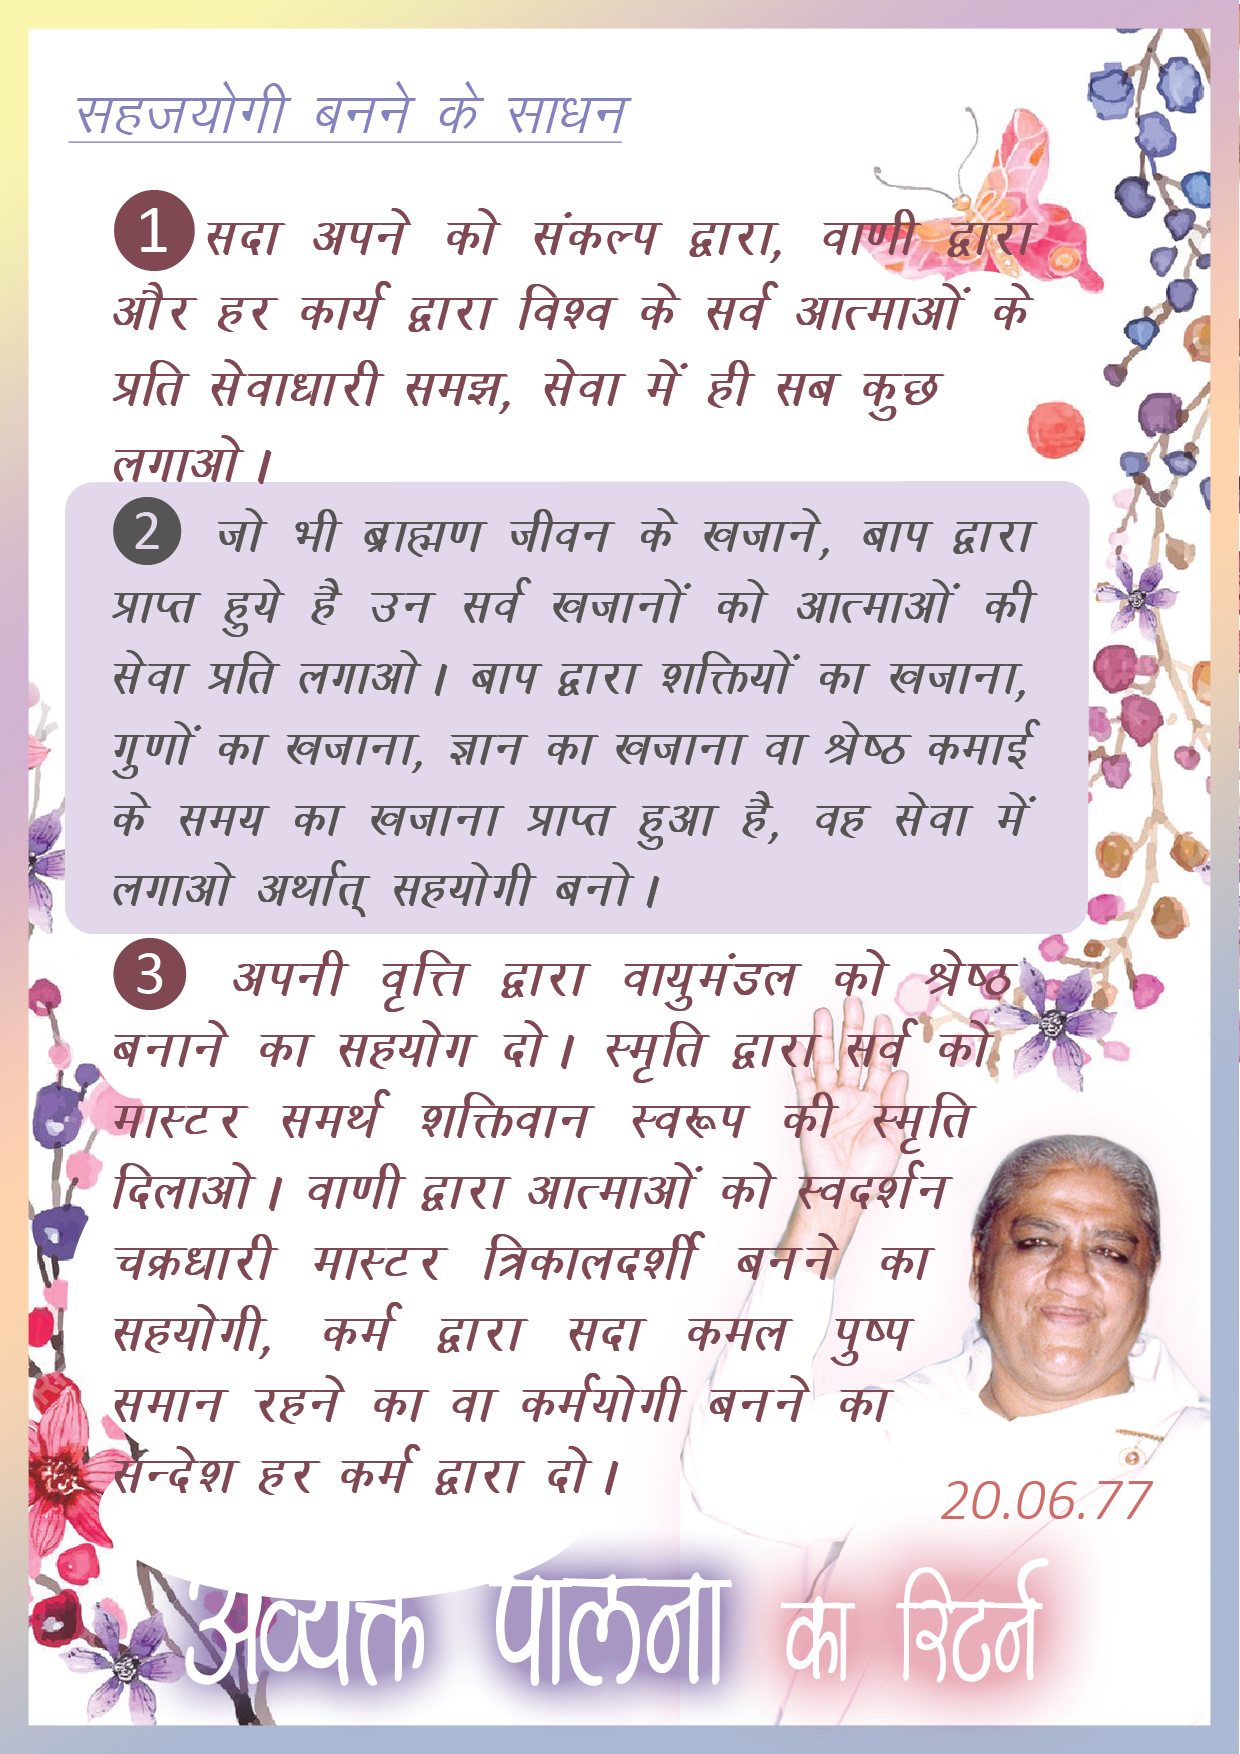 सहजयोगी बनने के साधन
1 सदा अपने को संकल्प द्वारा, वाणी द्वारा
और हर कार्य द्वारा विश्व के सर्व आत्माओं के
प्रति सेवाधारी समझ, सेवा में ही सब कुछ
लगाओ।
2 जो भी ब्राह्मण जीवन के खजाने, बाप द्वारा
प्राप्त हुये है उन सर्व खजानों को आत्माओं की
सेवा प्रति लगाओ। बाप द्वारा शक्तियों का खजाना,
गुणों का खजाना, ज्ञान का खजाना वा श्रेष्ठ कमाई
के समय का खजाना प्राप्त हुआ है, वह सेवा में
लगाओ अर्थात् सहयोगी बनो।
3 अपनी वृत्ति द्वारा वायुमंडल को श्रेष्ठ
बनाने का सहयोग दो। स्मृति द्वारा सर्व को
मास्टर समर्थ शक्तिवान स्वरूप की स्मृति
दिलाओ। वाणी द्वारा आत्माओं को स्वदर्शन
चक्रधारी मास्टर त्रिकालदर्शी बनने का
सहयोगी, कर्म द्वारा सदा कमल पुष्प
समान रहने का वा कर्मयोगी बनने का
सन्देश हर कर्म द्वारा दो।
20.06.77
अव्यक्त पालना का रिटर्न